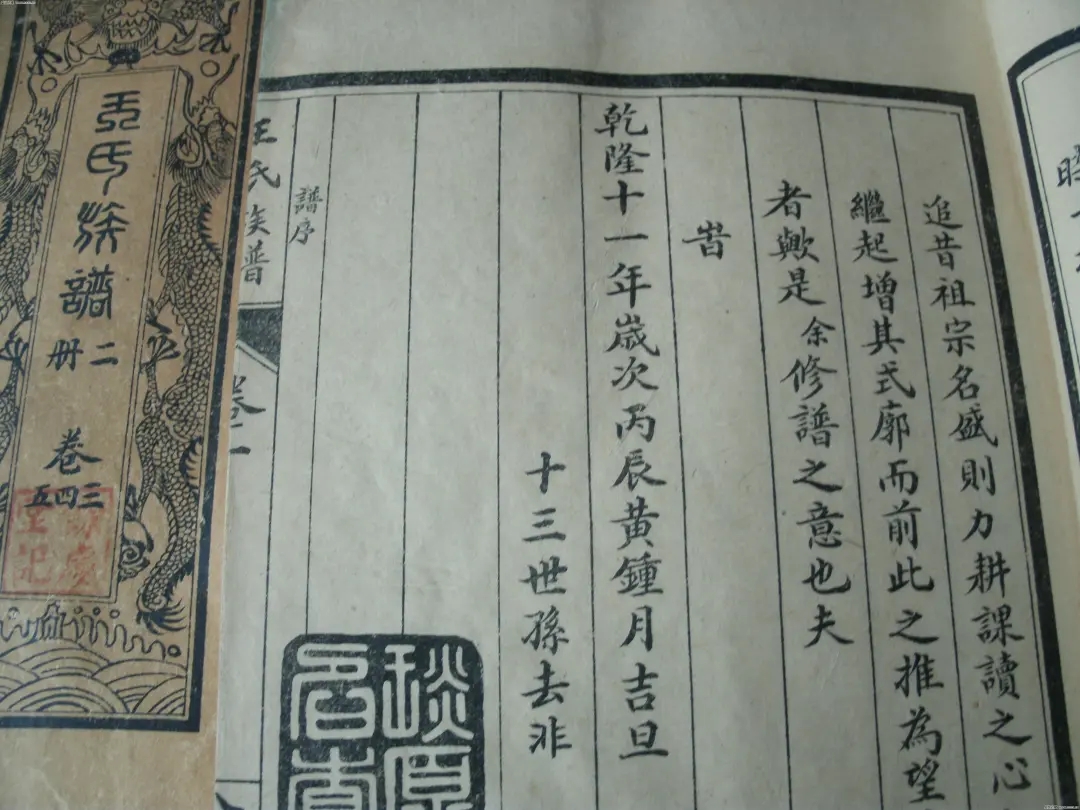 追昔祖宗名盛則力耕課讀之心
繼起增其式廓而前此之推為望
者歟是余修譜之意也夫
旹
乾隆十一年歲次丙辰黃鍾月吉旦
十三世孫去非
譜序
王氏族譜
卷二
王氏族譜
二冊
卷
三四五